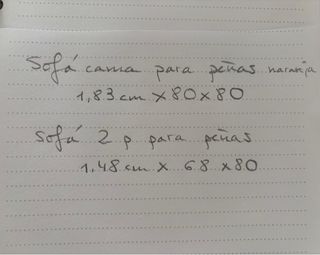 Sofá cama para peñas naranja
1,83 cm x 80 x 80
Sofá 2 p para peñas
1.48 cm x 68 x 80